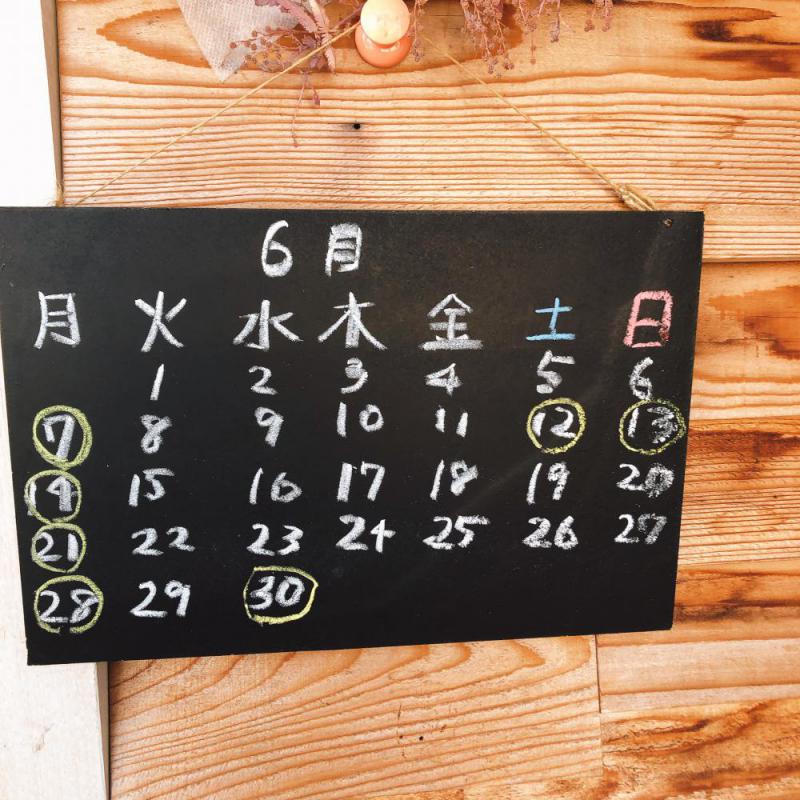 6月
月 火 水 木 金 土 日
1 2 3 4 5 6
7 8 9 10 11 12 13
14 15 16 17 18 19 20
21 22 23 24 25 26 27
28 29 30